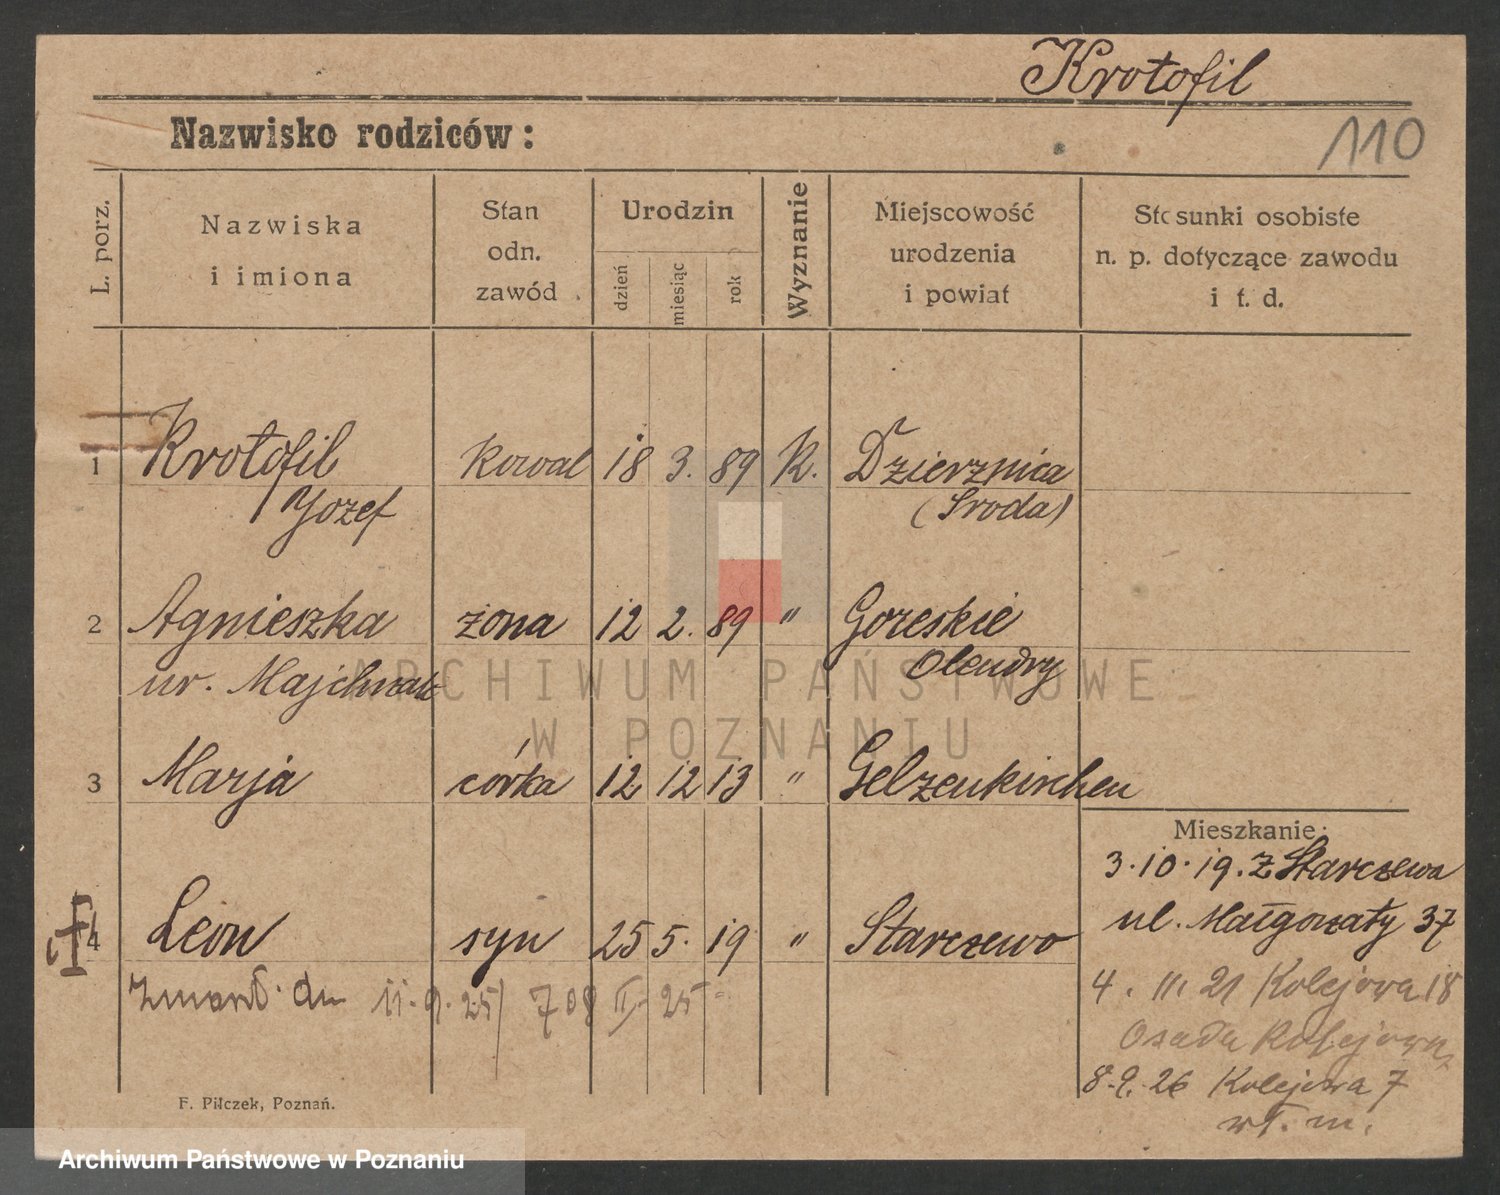 Krotofil
Nazwisko rodziców:
110
L. porz.
Nazwiska
i imiona
Stan
odn.
zawód
Urodzin
dzień
miesiąc
rok
Wyznanie
Miejscowość
urodzenia
i powiat
Stosunki osobiste
n. p. dotyczące zawodu
i t. d.
1 Krotofil Kowal 18 3. 89 K. Dzierznica
Jozef (Sroda)
2 Agnieszka żona 12 2. 89 " Goreskie
ur. Majchrzak Olendry
3 Marja córka 12 12 13 " Gelzenkirchen
Mieszkanie:
3.10.19. z Starczewa
ul. Małgorzaty 37
4 Leon syn 25 5. 19 " Starczewo
Zmarł dn 11.9.25/ 708 II 25
4. 11. 21 Kolejowa 18
Osada Kolejowa
8.9.26 Kolejowa 7
wł. m.
F. Pilczek, Poznań.
ARCHIWUM PAŃSTWOWE
W POZNANIU
Archiwum Państwowe w Poznaniu